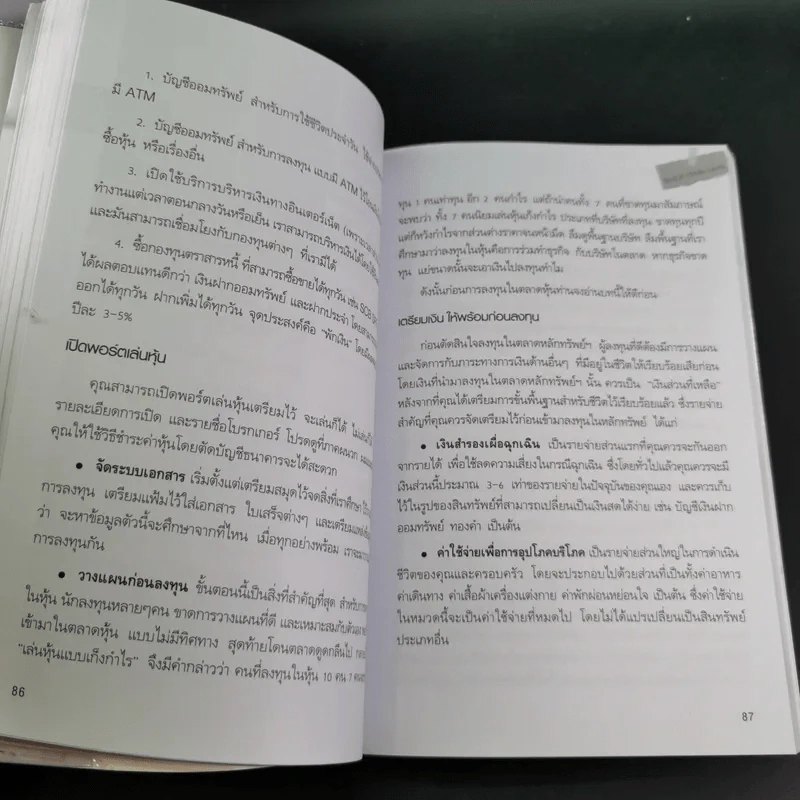 1. บัญชีออมทรัพย์ สำหรับการใช้ชีวิตประจำวัน
มี ATM
2. บัญชีออมทรัพย์ สำหรับการลงทุน แบบมี ATM
ซื้อหุ้น หรือเรื่องอื่น
3. เปิดใช้บริการบริหารเงินทางอินเตอร์เน็ต
ทำงานแต่เวลาตอนกลางวันหรือเย็น เราสามารถบริหารเงินได้โดย
และมันสามารถเชื่อมโยงกับกองทุนต่างๆ ที่เรามีได้
4. ซื้อกองทุนตราสารหนี้ ที่สามารถซื้อขายได้ทุกวัน เช่น SCB
ได้ผลตอบแทนดีกว่า เงินฝากออมทรัพย์ และฝากประจำ
ออกได้ทุกวัน ฝากเพิ่มได้ทุกวัน จุดประสงค์คือ "พักเงิน"
ปีละ 3-5%
เปิดพอร์ตเล่นหุ้น
คุณสามารถเปิดพอร์ตเล่นหุ้นเตรียมไว้ จะเล่นก็ได้
รายละเอียดการเปิด และรายชื่อโบรกเกอร์ โปรดดูที่ภาคผนวก
คุณให้ใช้วิธีชำระค่าหุ้นโดยตัดบัญชีธนาคารจะได้สะดวก
• จัดระบบเอกสาร เริ่มตั้งแต่เตรียมสมุดไว้จดสิ่งที่เราศึกษา
การลงทุน เตรียมแฟ้มไว้ใส่เอกสาร ใบเสร็จต่างๆ
ว่า จะหาข้อมูลตัวนี้จะศึกษาจากที่ไหน เมื่อทุกอย่างพร้อม
การลงทุนกัน
• วางแผนก่อนลงทุน ขั้นตอนนี้เป็นสิ่งที่สำคัญที่สุด
ในหุ้น นักลงทุนหลายๆคน ขาดการวางแผนที่ดี และเหมาะสมกับตัวเอง
เข้ามาในตลาดหุ้น แบบไม่มีทิศทาง สุดท้ายโดนตลาดดูดกลืนไป
"เล่นหุ้นแบบเก็งกำไร" จึงมีคำกล่าวว่า คนที่ลงทุนในหุ้น 10 คน 7 คน
86
ทุน 1 คนเท่าทุน อีก 2 คนกำไร แต่ถ้านำคนทั้ง 7 คนที่ขาดทุนมาสัมภาษณ์
จะพบว่า ทั้ง 7 คนนิยมเล่นหุ้นเก็งกำไร ประเภทที่บริษัทที่ลงทุน ขาดทุนทุกปี
แต่ก็หวังกำไรจากส่วนต่างราคาจนหน้ามืด ลืมดูพื้นฐานบริษัท ลืมพื้นฐานที่เรา
ศึกษามาว่าลงทุนในหุ้นคือการร่วมทำธุรกิจ กับบริษัทในตลาด หากธุรกิจขาด
ทุน แย่ขนาดนั้นจะเอาเงินไปลงทุนทำไม
ดังนั้นก่อนการลงทุนในตลาดหุ้นท่านจงอ่านบทนี้ให้ดีก่อน
เตรียมเงิน ให้พร้อมก่อนลงทุน
ก่อนตัดสินใจลงทุนในตลาดหลักทรัพย์ฯ ผู้ลงทุนที่ดีต้องมีการวางแผน
และจัดการกับภาระทางการเงินด้านอื่นๆ ที่มีอยู่ในชีวิตให้เรียบร้อยเสียก่อน
โดยเงินที่นำมาลงทุนในตลาดหลักทรัพย์ฯ นั้น ควรเป็น "เงินส่วนที่เหลือ"
หลังจากที่คุณได้เตรียมการขั้นพื้นฐานสำหรับชีวิตไว้เรียบร้อยแล้ว ซึ่งรายจ่าย
สำคัญที่คุณควรจัดเตรียมไว้ก่อนเข้ามาลงทุนในหลักทรัพย์ ได้แก่
• เงินสำรองเผื่อฉุกเฉิน เป็นรายจ่ายส่วนแรกที่คุณควรจะกันออก
จากรายได้ เพื่อใช้ลดความเสี่ยงในกรณีฉุกเฉิน ซึ่งโดยทั่วไปแล้วคุณควรจะมี
เงินส่วนนี้ประมาณ 3-6 เท่าของรายจ่ายในปัจจุบันของคุณเอง และควรเก็บ
ไว้ในรูปของสินทรัพย์ที่สามารถเปลี่ยนเป็นเงินสดได้ง่าย เช่น บัญชีเงินฝาก
ออมทรัพย์ ทองคำ เป็นต้น
• ค่าใช้จ่ายเพื่อการอุปโภคบริโภค เป็นรายจ่ายส่วนใหญ่ในการดำเนิน
ชีวิตของคุณและครอบครัว โดยจะประกอบไปด้วยส่วนที่เป็นทั้งค่าอาหาร
ค่าเดินทาง ค่าเสื้อผ้าเครื่องแต่งกาย ค่าพักผ่อนหย่อนใจ เป็นต้น ซึ่งค่าใช้จ่าย
ในหมวดนี้จะเป็นค่าใช้จ่ายที่หมดไป โดยไม่ได้แปรเปลี่ยนเป็นสินทรัพย์
ประเภทอื่น
87